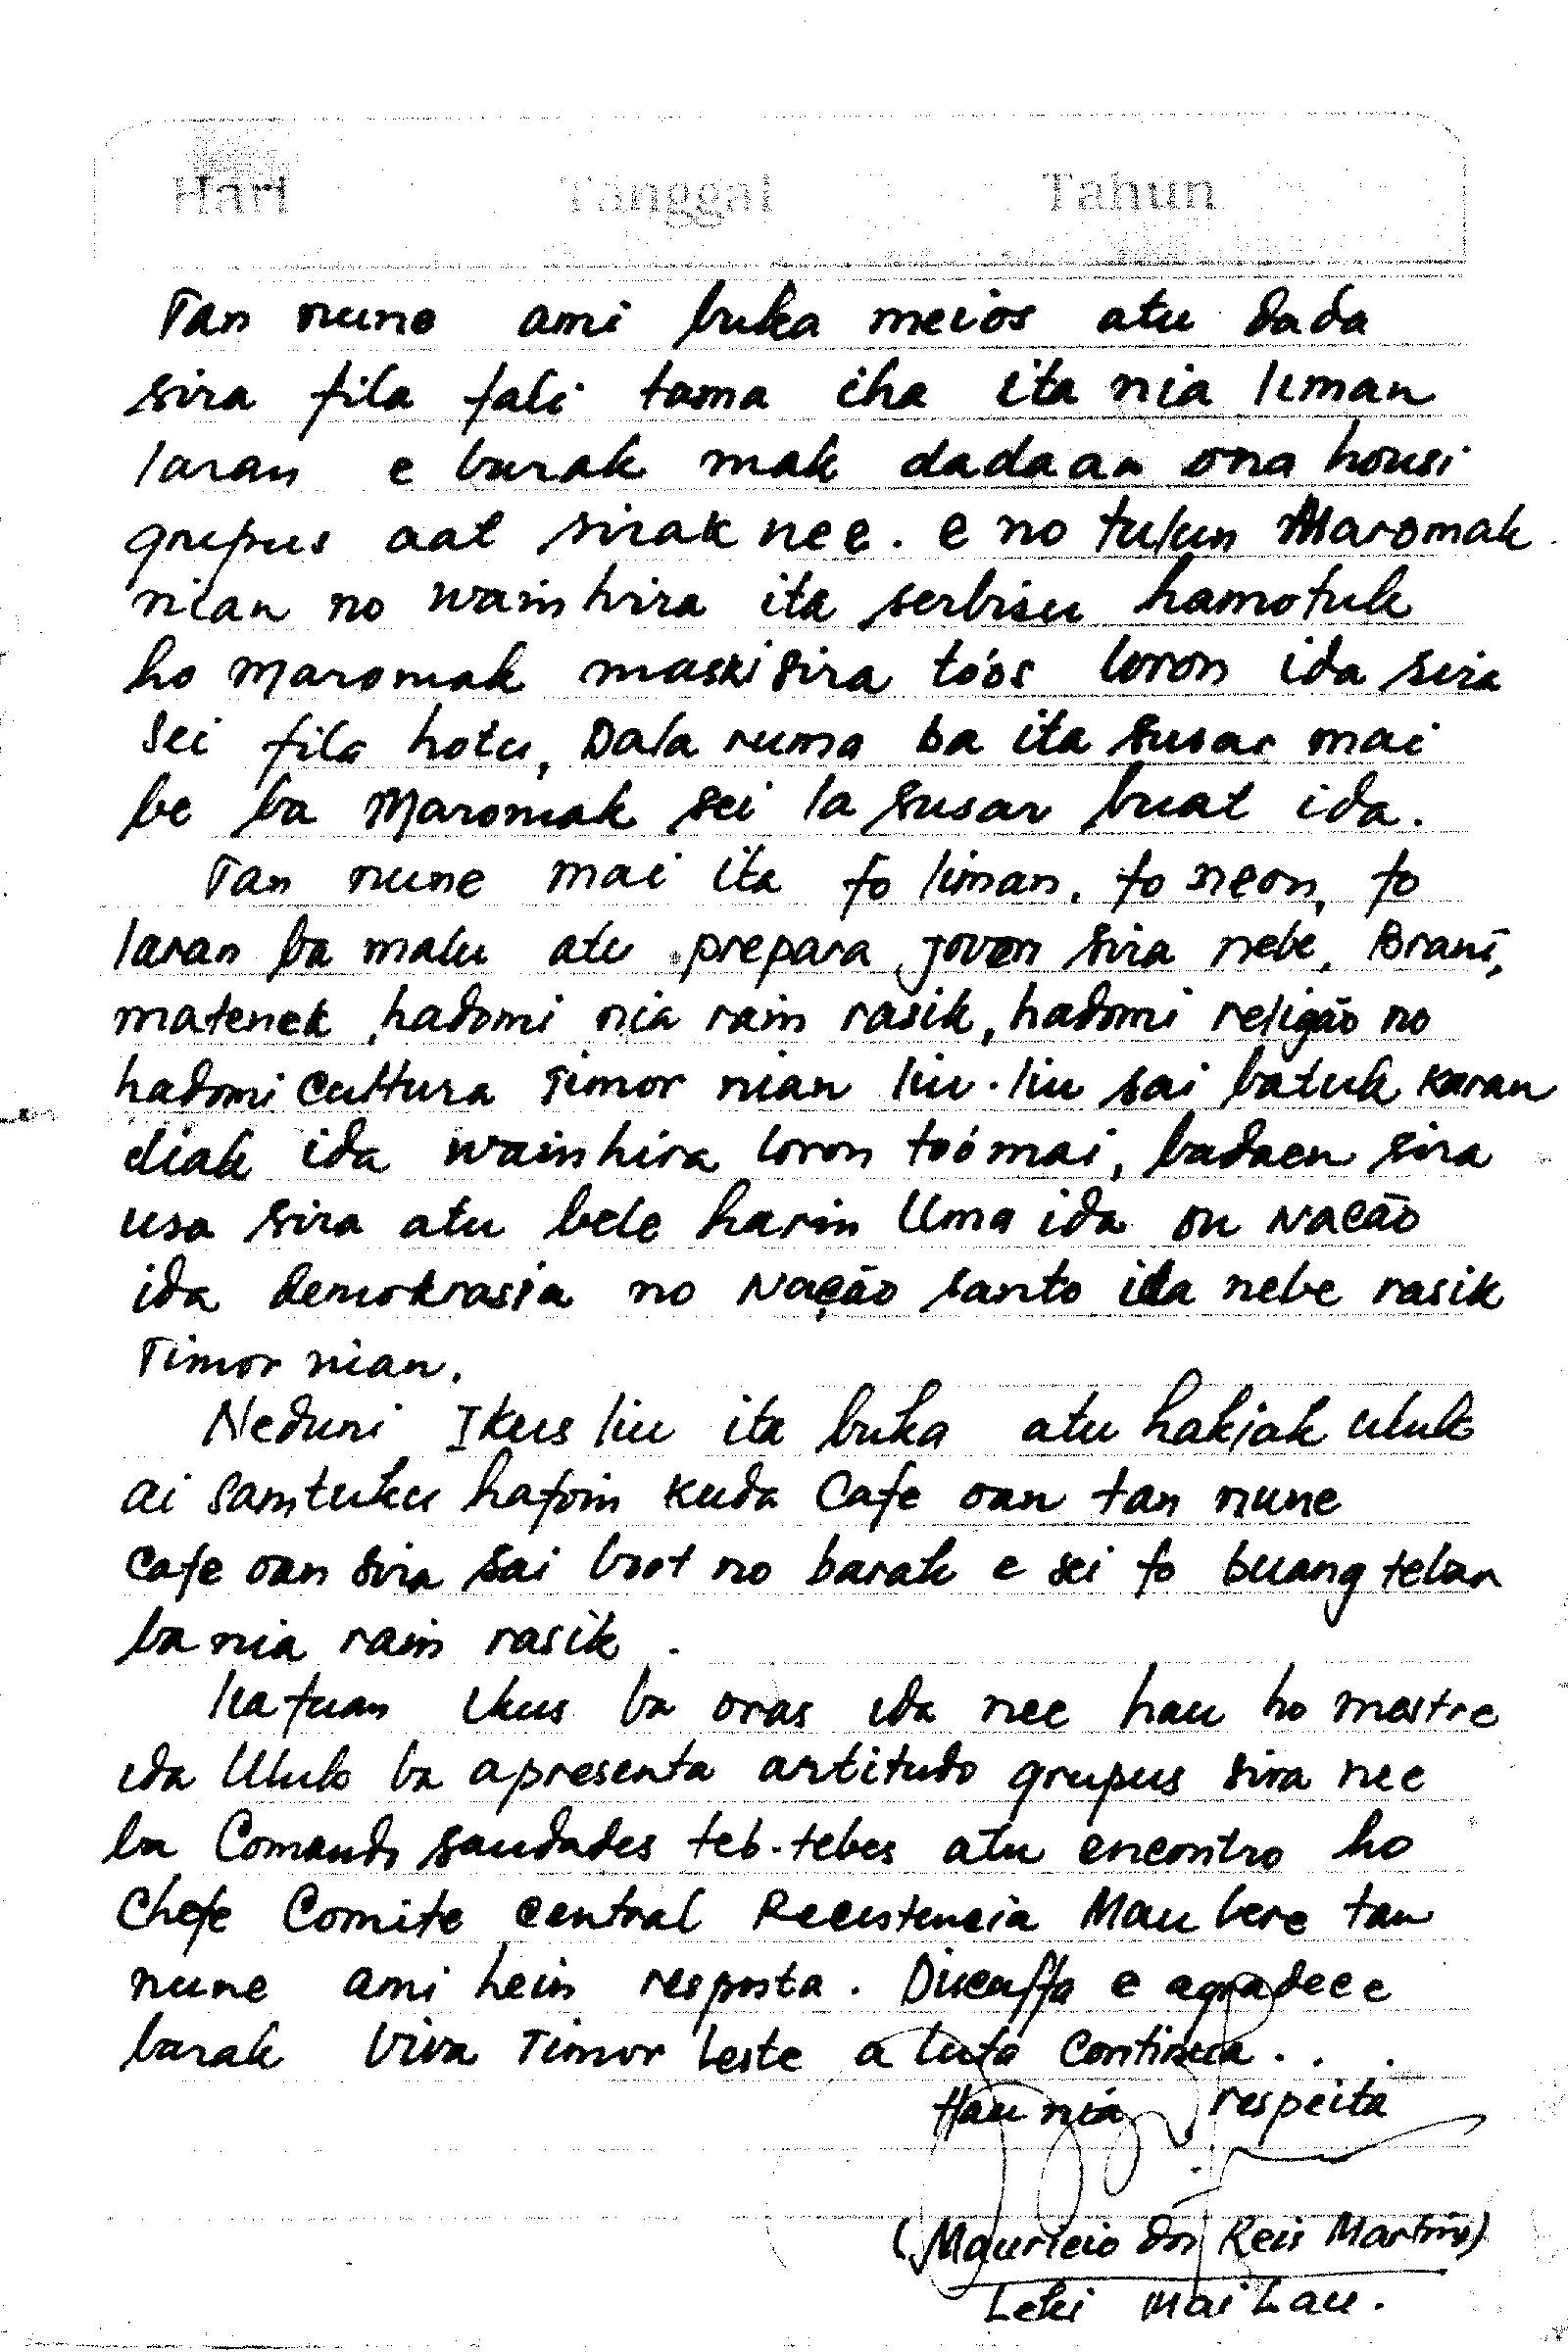 Hari Tanggal Tahun
Tan nune ami buka meios atu dada
sira fila fali tama iha ita nia liman
laran e barak mak dadaan ona housi
grupus aat sirak nee. e no tulun Maromak
nian no wainhira ita serbisu hamotuk
ho Maromak maski sira tóos loron ida sira
sei fila hotu, Dala ruma ba ita susar mai
be ba Maromak sei la susar buat ida.
Tan nune mai ita fo liman, fo neon, fo
laran ba malu atu prepara joven sira nebe, Brani,
matenek, hadomi nia rain rasik, hadomi religão no
hadomi cultura Timor nian liu-liu sai batuk karan
diak ida wainhira loron toó mai, badaen sira
usa sira atu bele harin Uma ida ou Nacão
ida demokrasia no Nação santo ida nebe rasik
Timor nian.
Neduni Ikus liu ita buka atu hakiak uluk
ai samtuku hafoin kuda Cafe oan tan nune
Cafe oan sira sai boot no barak e sei fo buang teban
ba nia rain rasik.
liafuan ikus ba oras ida nee hau ho mestre
ida Uluk ba apresenta artitudo grupus sira nee
ba Comando saudades teb-tebes atu encontro ho
Chefe Comite central Recistencia Maubere tan
nune ami hein resposta. Disculfa e agradece
barak Viva Timor Leste a luta Continua...
Hau nia respeita
(Mauricio dos Reis Martins)
Leki Mai Lau.